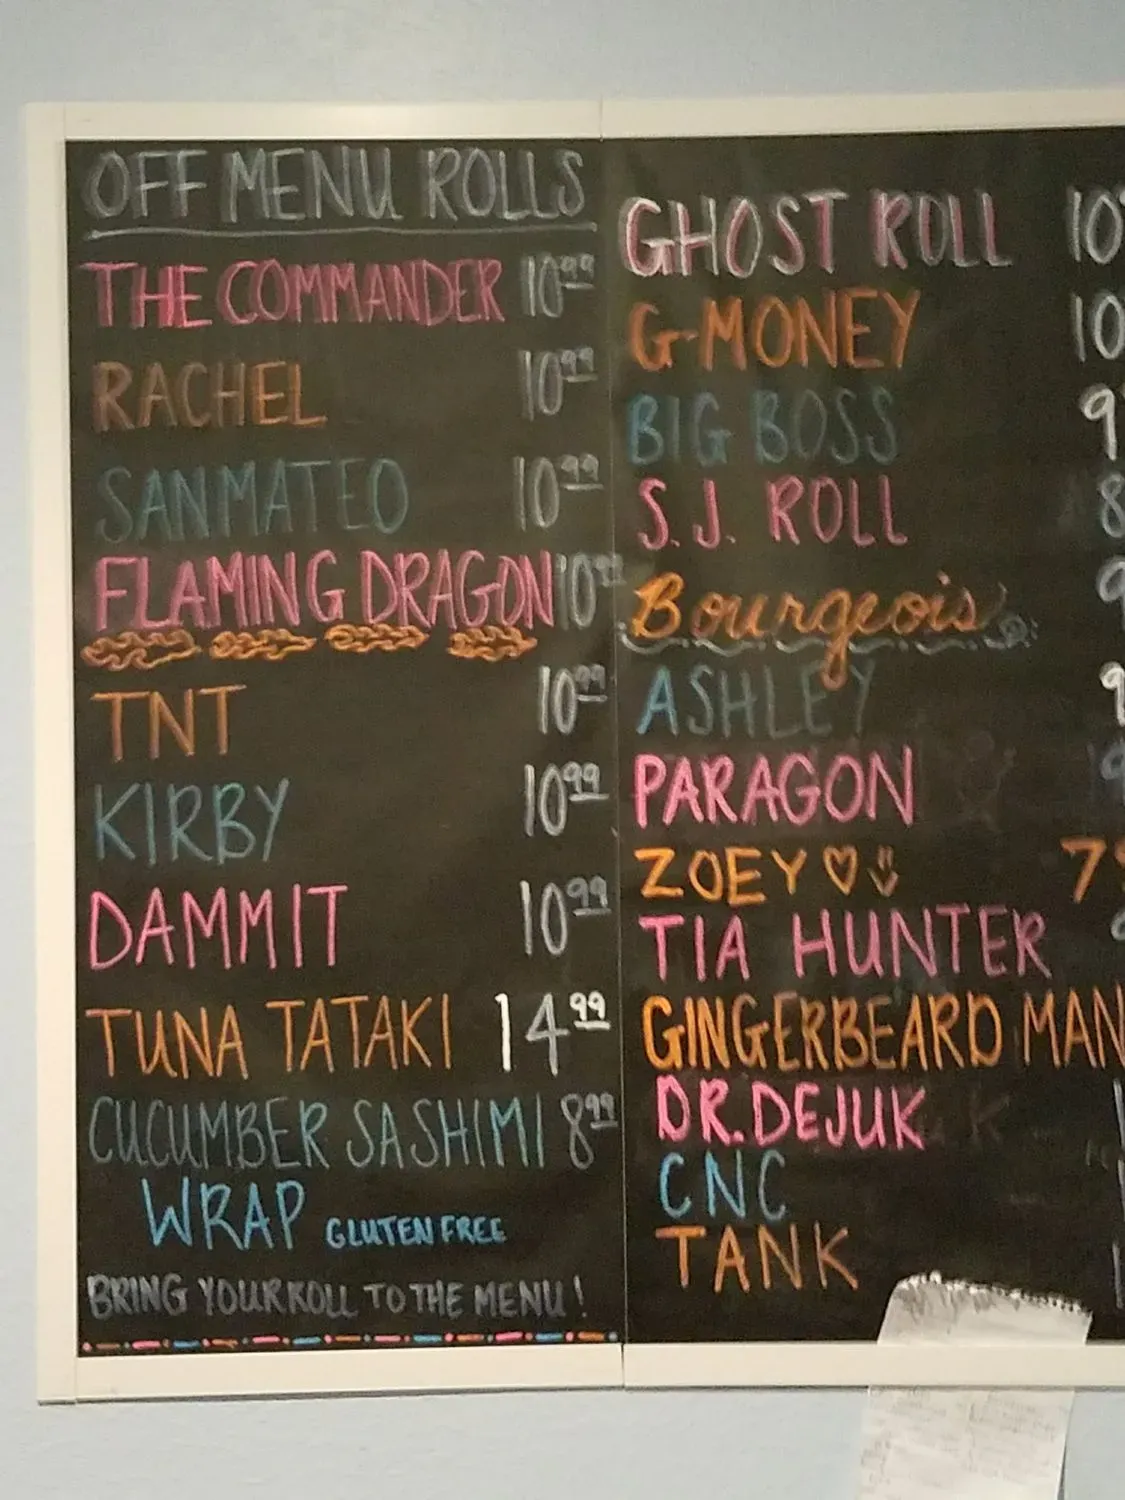 OFF MENU ROLLS
THE COMMANDER 10.99
RACHEL 10.99
SANMATEO 10.99
FLAMING DRAGON 10.99
TNT 10.99
KIRBY 10.99
DAMMIT 10.99
TUNA TATAKI 14.99
CUCUMBER SASHIMI 8.99
WRAP GLUTEN FREE
BRING YOUR ROLL TO THE MENU!
GHOST ROLL 10
G-MONEY 10
BIG BOSS 9
S.J. ROLL 8
Bourgeois 9
ASHLEY 9
PARAGON 9
ZOEY♡ 79
TIA HUNTER
GINGERBEARD MAN
DR. DEJUK
CNC
TANK